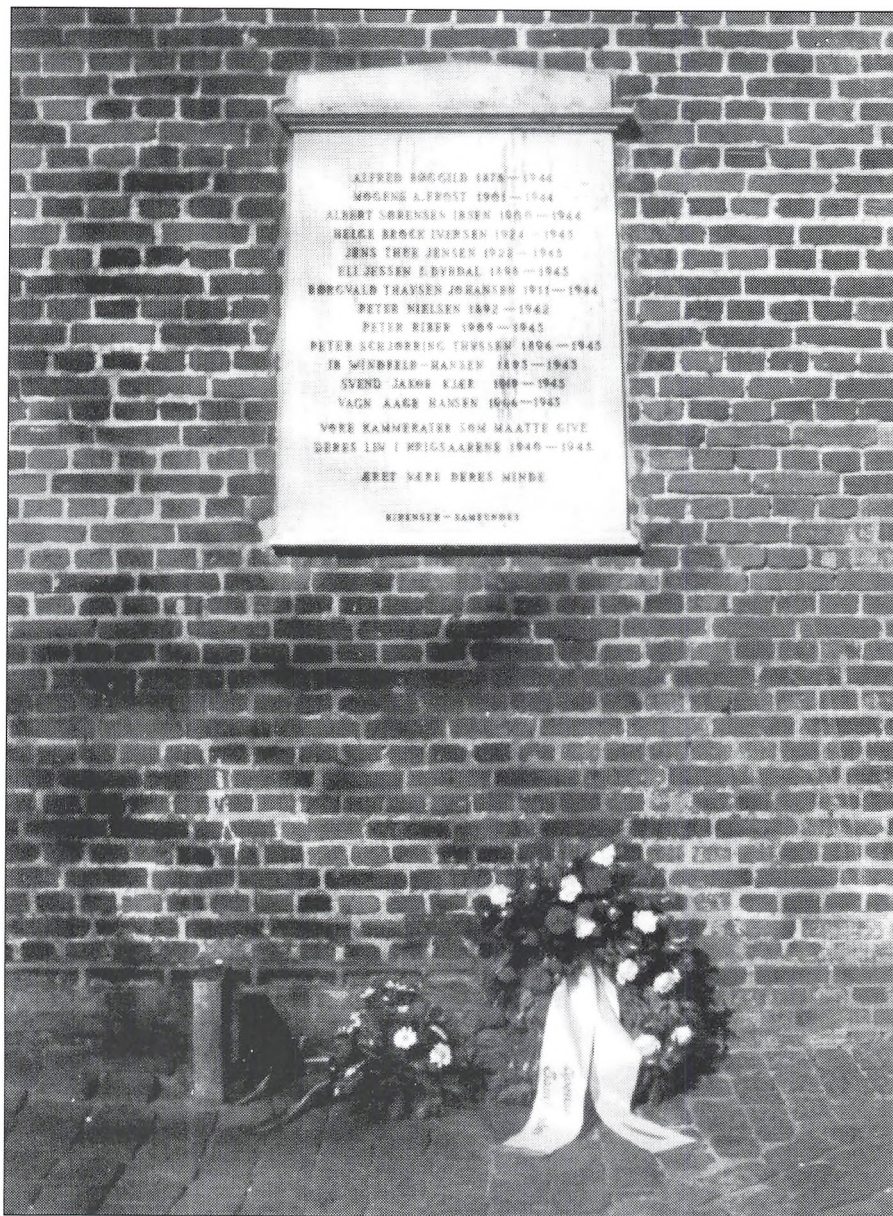 ALFRED BØGGILD 1876—1944
MOGENS A. FROST 1901—1944
ALBERT SØRENSEN IBSEN 1900—1944
HELGE BROCK IVERSEN 1924—1945
JENS THUE JENSEN 1922—1945
ELI JESSEN S. DYRDAL 1896—1945
BORGVALD THAYSEN JOHANSEN 1911—1944
PETER NIELSEN 1892—1942
PETER RIBER 1909—1945
PETER SCHJØRRING THYSSEN 1896—1945
IB WINDFELD-HANSEN 1895—1945
SVEND JAKOB KJÆR 1945
VAGN AAGE HANSEN 1945
VORE KAMMERATER SOM MAATTE GIVE
DERES LIV I KRIGSAARENE 1940—1945
ÆRET VÆRE DERES MINDE
RIPENSER—SAMFUNDET